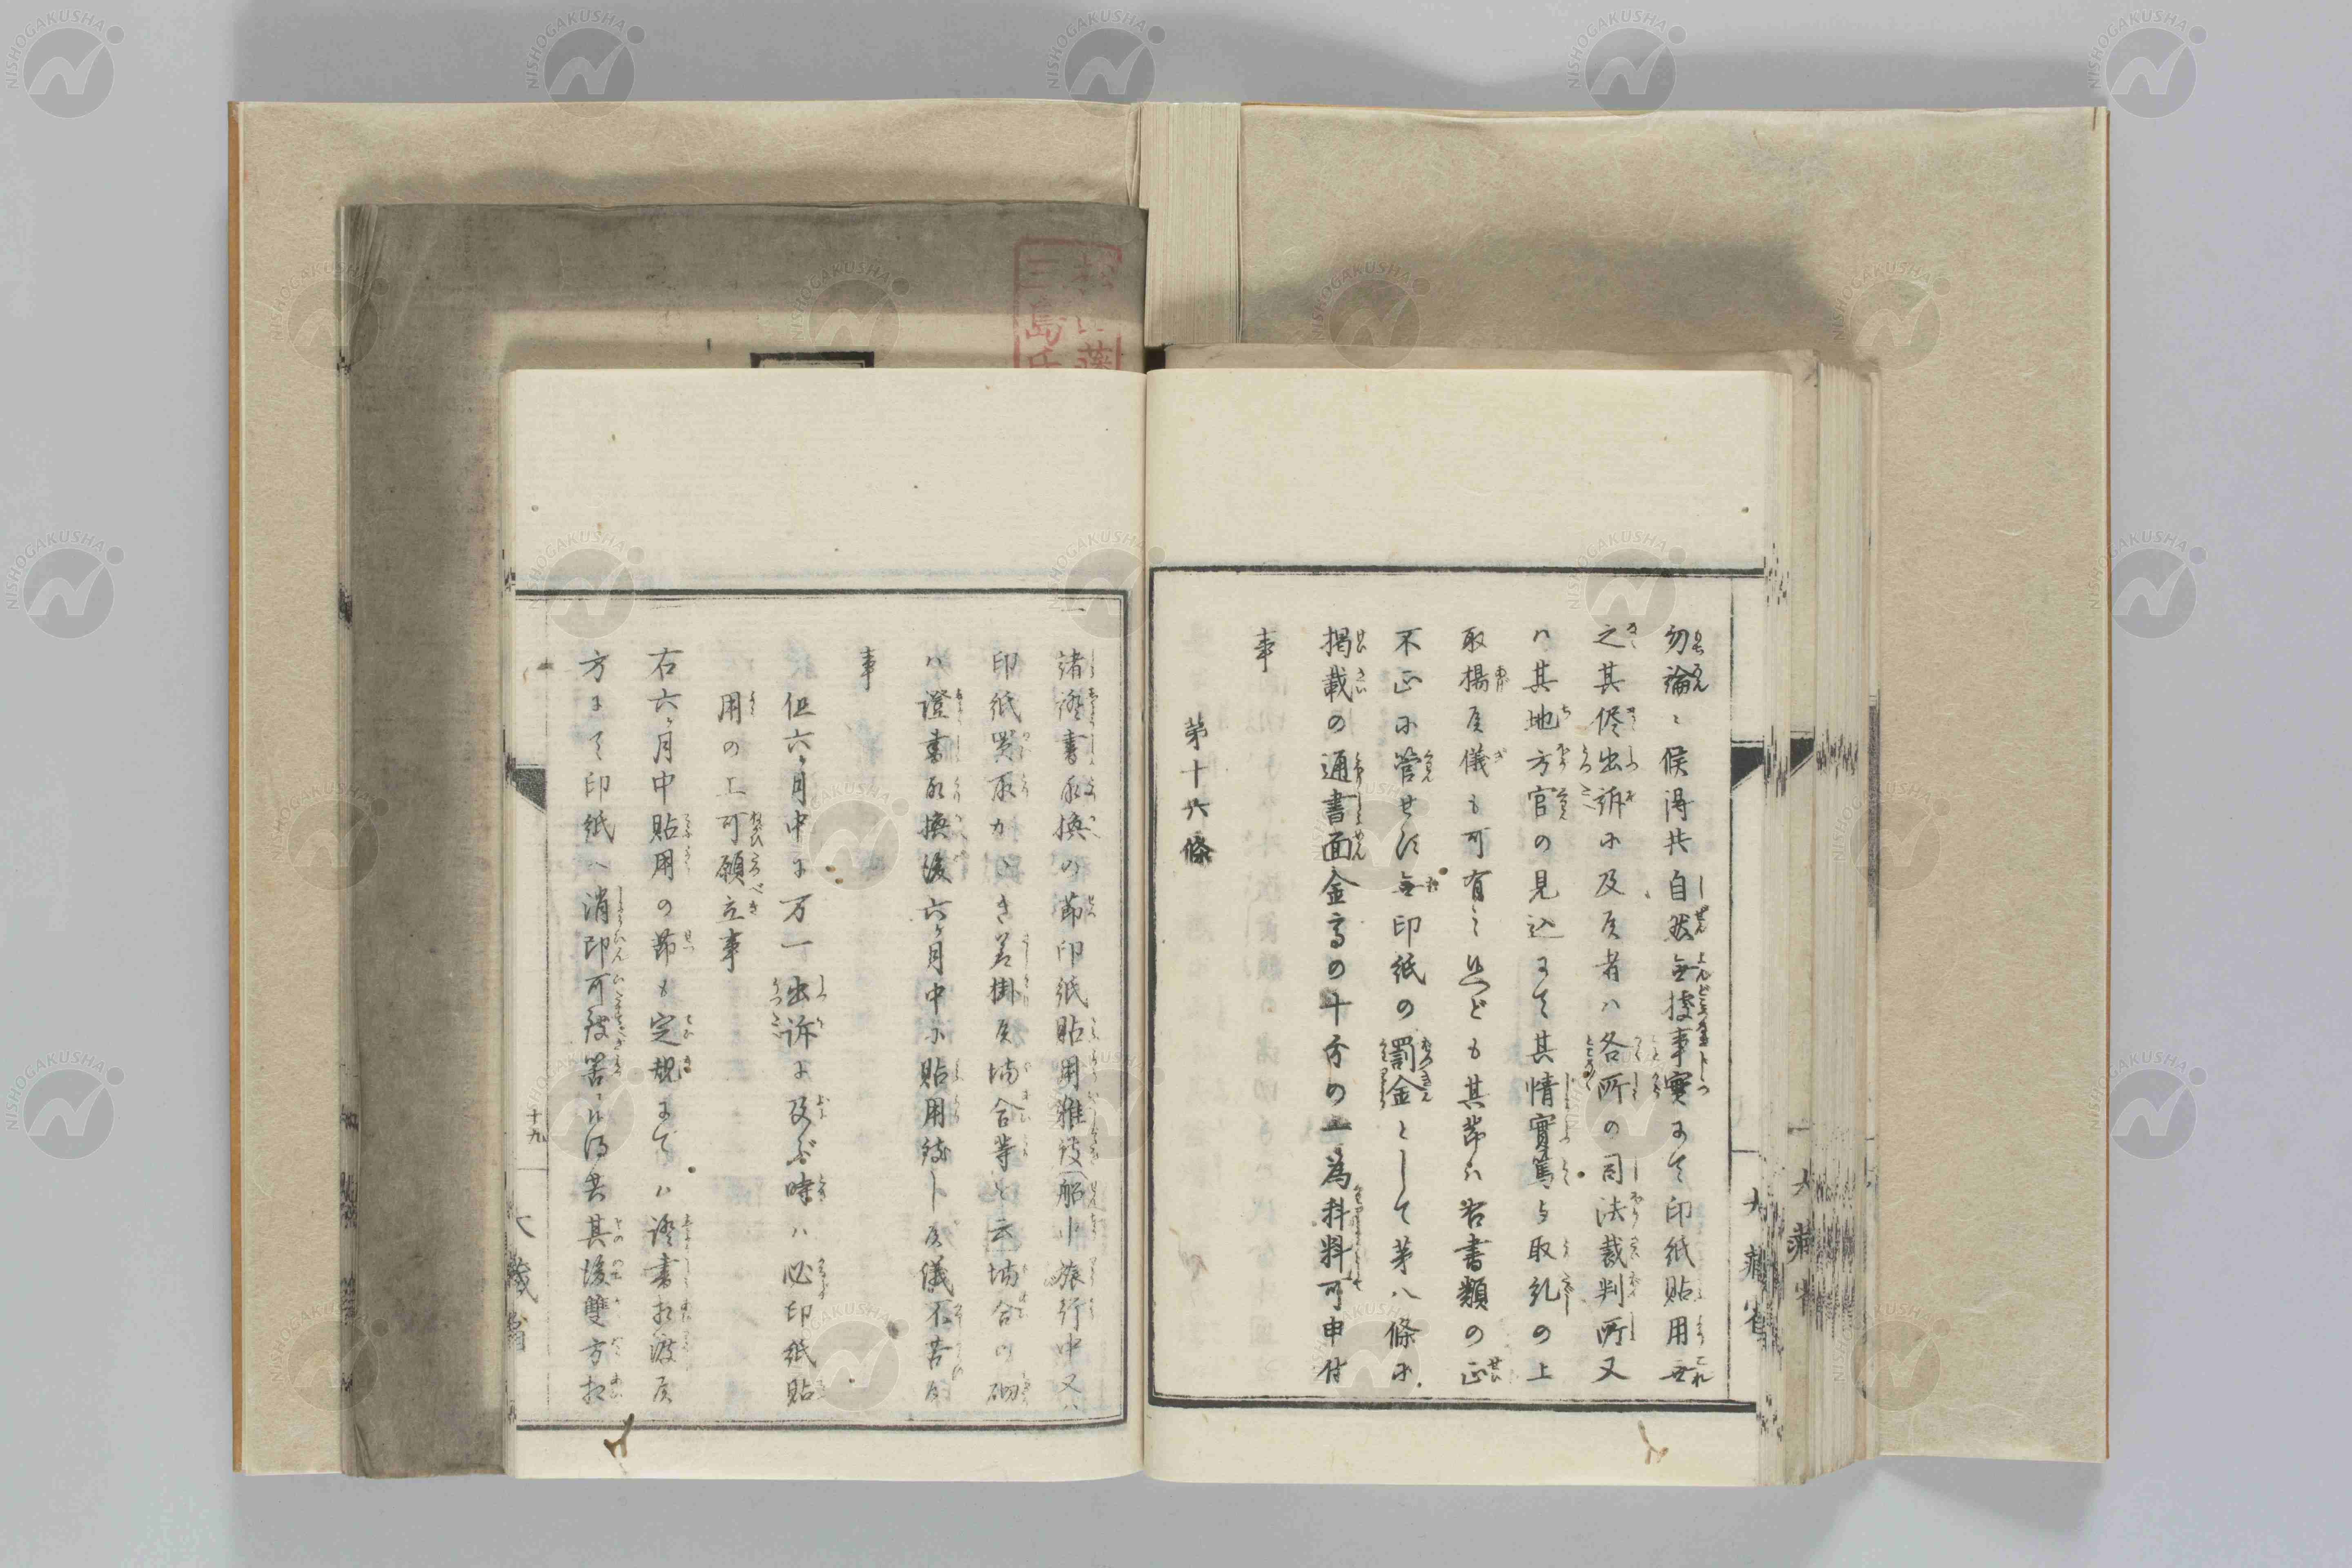 勿論ニ候得共自然無據事實ニて印紙貼用無
之其侭出訴に及候者ハ各所の司法裁判所又
ハ其地方官の見込ニて其情實篤与取糺の上
取揚候儀も可有之然ども其節は右書類の正
不正に管せず無印紙の罰金として第八條に
掲載の通書面金高の十分の一為科料可申付
事
第十六條
諸證書取換の節印紙貼用難致船中旅行中又ハ
印紙買取かたき差掛候場合等と云場合の砌
ハ證書取換後六ヶ月中に貼用致し候儀不苦候
事
但六ヶ月中に万一出訴に及ぶ時ハ必印紙貼
用の上可願立事
右六ヶ月中貼用の節も定規までハ證書相渡候
方ニて印紙へ消印可致筈ニ候得共其後雙方相
十九
大藏省
大藏省
NISHOGAKUSHA